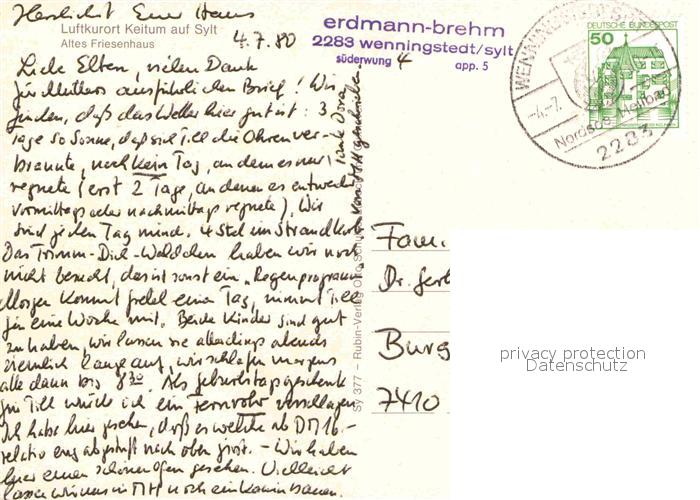 Herzlichst Euer Hans
Luftkurort Keitum auf Sylt
Altes Friesenhaus
4.7.80
erdmann-brehm
2283 wenningstedt/sylt
süderwung 4 app. 5
Liebe Eltern, vielen Dank
für Mutters ausführlichen Brief! Wir
finden, daß das Wetter hier gut ist: 3
Tage so Sonne, daß sich Till die Ohren ver-
brannte, noch kein Tag, an dem es nur
regnete (erst 2 Tage, an denen es entweder
vormittags oder nachmittags regnete). Wir
sind jeden Tag mind. 4 Std im Strandkorb
Das Trimm-Dich-Wäldchen haben wir noch
nicht besucht, das ist sonst ein "Regenprogramm"
Morgen kommt für einen Tag, nimmt Till
für eine Woche mit. Beide Kinder sind gut
zu haben, wir lassen sie allerdings abends
ziemlich lange auf, wir schlafen morgens
alle dann bis 8³⁰. Als Geburtstagsgeschenk
für Till würde ich ein Fernrohr vorschlagen
Ich habe hier gesehen, daß es welche ab DM 16.-
relativ eng abgestuft nach oben gibt. - Wir haben
hier einen schönen Ofen gesehen. Vielleicht
lassen wir uns in noch ein Kamin bauen.
Sy 377 – Rubin-Verlag Otto
DEUTSCHE BUNDESPOST
50
WENNINGSTEDT
-4.-7.
Nordsee-Heilbad
2283
Fam.
Dr. Gerh
Burg
7410
privacy protection
Datenschutz